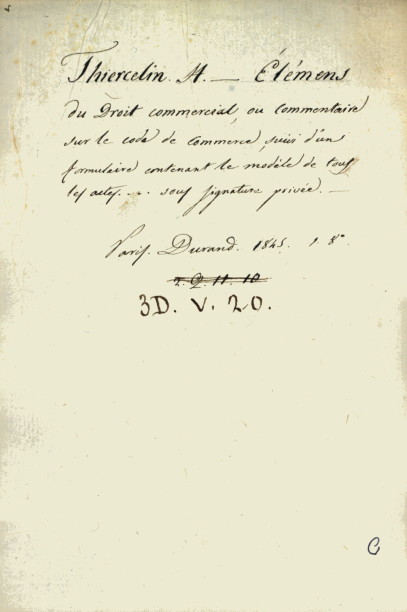 Thiercelin H. — Élémens
du Droit commercial, ou Commentaire
sur le code de Commerce, suivi d'un
formulaire contenant le modèle de tous
les actes.... sous signature privée. —
Paris. Durand. 1845. 1. 8°
2. Q. 11. 10
3D. V. 20.
C